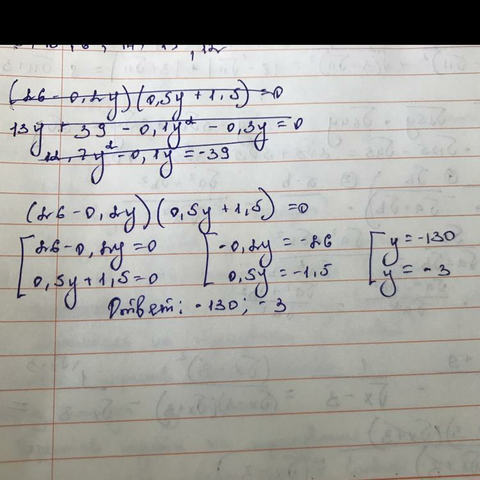 (26 - 0,2y)(0,5y + 1,5) = 0
13y + 39 - 0,1y² - 0,3y = 0
12,7y² - 0,1y = -39
(26 - 0,2y)(0,5y + 1,5) = 0
[26 - 0,2y = 0 [-0,2y = -26 [y = -130
0,5y + 1,5 = 0 0,5y = -1,5 y = -3
Ответ: -130; -3